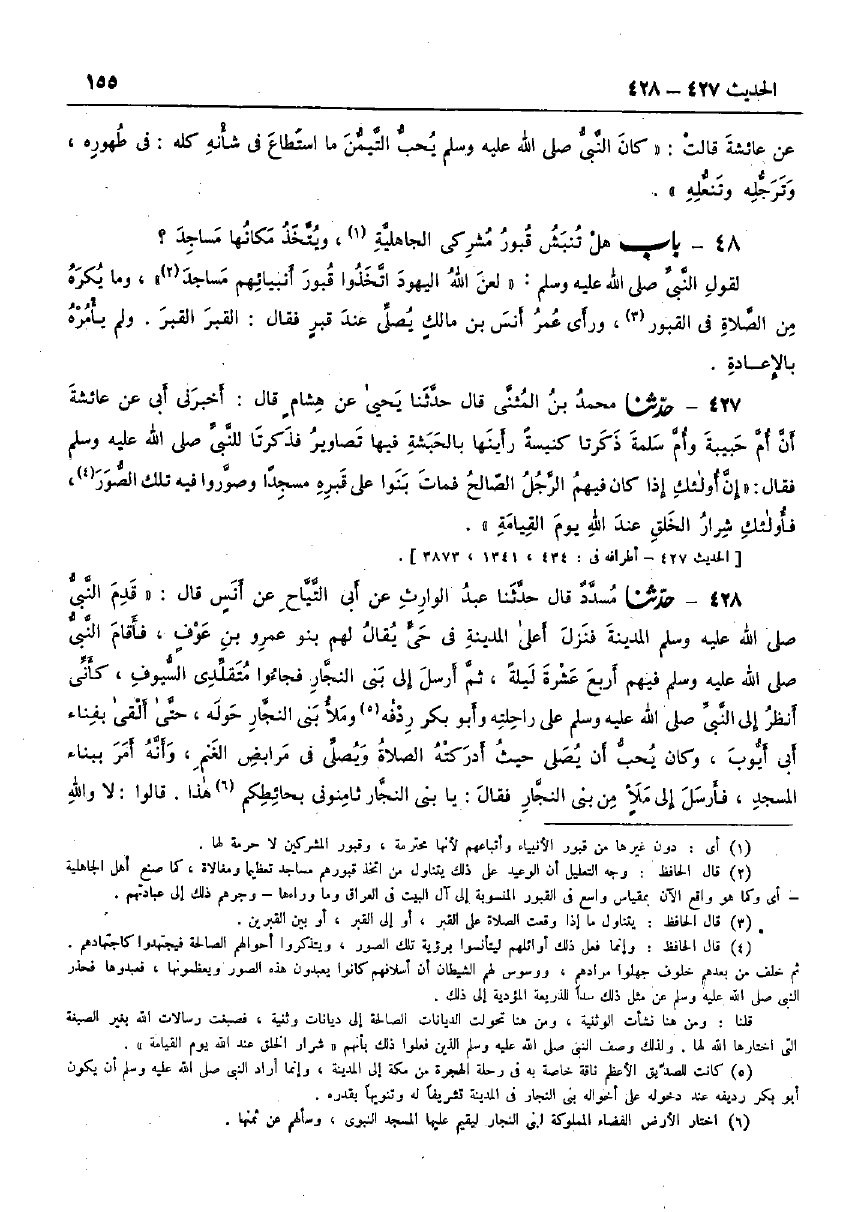 الحديث ٤٢٧ – ٤٢٨ ١٥٥
عن عائشةَ قالتْ : « كانَ النَّبىُّ صلى الله عليه وسلم يُحبُّ التَّيمُّنَ ما استَطاعَ فى شأْنهِ كله : فى طُهورِه ،
وَتَرَجُّلِه وتَنعُّلِهِ » .
٤٨ – باب هلْ تُنبَشُ قُبورُ مُشرِكى الجاهليَّةِ (١) ، ويُتَّخَذُ مَكانُها مَساجِدَ ؟
لقولِ النَّبىِّ صلى الله عليه وسلم : « لعنَ اللهُ اليهودَ اتَّخَذُوا قُبورَ أنبيائِهم مَساجدَ (٢)» ، وما يُكرَهُ
مِن الصَّلاةِ فى القبور (٣) ، ورأى عُمرُ أنَسَ بن مالكٍ يُصلِّى عندَ قبرٍ فقال : القبرَ القبرَ . ولم يأْمُرْهُ
بالإعـادةِ .
٤٢٧ – حدّثنا محمدُ بنُ المُثنَّى قال حدَّثَنا يَحيىٰ عن هِشامٍ قال : أخبرَنى أبى عن عائشةَ
أنَّ أُمَّ حَبيبةَ وأُمَّ سَلمةَ ذَكَرتا كنيسةً رأينَها بالحَبَشةِ فيها تَصاويرُ فذكَرتَا للنَّبىِّ صلى الله عليه وسلم
فقال : « إنَّ أُولئكِ إذا كان فيهمُ الرَّجُلُ الصّالحُ فماتَ بَنَوا على قَبرِهِ مسجدًا وصوَّروا فيه تلكَ الصُّوَرَ(٤)،
فأُولئكِ شِرارُ الخَلقِ عندَ اللهِ يومَ القِيامَةِ » .
[ الحديث ٤٢٧ – أطرافه فى : ٤٣٤ ، ١٣٤١ ، ٣٨٧٣ ] .
٤٢٨ – حدّثنا مُسدَّدٌ قال حدَّثَنا عبدُ الوارِثِ عن أبى التَّيّاحِ عن أنَسٍ قال : « قَدِمَ النَّبىُّ
صلى الله عليه وسلم المدينةَ فنَزلَ أعلىٰ المدينةِ فى حَىٍّ يُقالُ لهم بنو عمرِو بنِ عَوْفٍ ، فأَقامَ النَّبىُّ
صلى الله عليه وسلم فيهم أربعَ عَشْرةَ لَيلةً ، ثمَّ أرسلَ إلى بَنى النجّارِ فجاءُوا مُتَقلِّدى السُّيوفِ ، كأَنِّى
أنظرُ إلى النَّبىِّ صلى الله عليه وسلم على راحِلتِه وأبو بكر رِدْفُه(٥) ومَلأُ بَنى النجّارِ حَولَه ، حتَّىٰ ألْقىٰ بفِناء
أبى أيُّوبَ ، وكان يُحبُّ أن يُصَلى حيثُ أدرَكتْهُ الصلاةُ وَيُصلِّى فى مَرابضِ الغَنمِ ، وَأَنَّهُ أمَرَ ببناء
المسجدِ ، فأَرسَلَ إلى مَلَأٍ مِن بنى النجّارِ فقالَ : يا بنى النجَّارِ ثامِنونى بحائطِكم (٦) هذا . قالوا : لا واللهِ
(١) أى : دون غيرها من قبور الأنبياء وأتباعهم لأنها محترمة ، وقبور المشركين لا حرمة لها .
(٢) قال الحافظ : وجه التعليل أن الوعيد على ذلك يتناول من اتخذ قبورهم مساجد تعظيما ومغالاة ، كما صنع أهل الجاهلية
– أى وكما هو واقع الآن بمقياس واسع فى القبور المنسوبة إلى آل البيت فى العراق وما وراءها – وجرهم ذلك إلى عبادتهم .
(٣) قال الحافظ : يتناول ما إذا وقعت الصلاة على القبر ، أو إلى القبر ، أو بين القبرين .
(٤) قال الحافظ : وإنما فعل ذلك أوائلهم ليتأنسوا برؤية تلك الصور ، ويتذكروا أحوالهم الصالحة فيجتهدوا كاجتهادهم .
ثم خلف من بعدهم خلوف جهلوا مرادهم ، ووسوس لهم الشيطان أن أسلافهم كانوا يعبدون هذه الصور ويعظمونها ، فعبدوها فحذر
النبى صلى الله عليه وسلم عن مثل ذلك سداً للذريعة المؤدية إلى ذلك .
قلنا : ومن هنا نشأت الوثنية ، ومن هنا تحولت الديانات الصالحة إلى ديانات وثنية ، فصبغت رسالات الله بغير الصبغة
التى اختارها الله لها . ولذلك وصف النبى صلى الله عليه وسلم الذين فعلوا ذلك بأنهم « شرار الخلق عند الله يوم القيامة » .
(٥) كانت للصدّيق الأعظم ناقة خاصة به فى رحلة الهجرة من مكة إلى المدينة ، وإنما أراد النبى صلى الله عليه وسلم أن يكون
أبو بكر رديفه عند دخوله على أخواله بنى النجار فى المدينة تشريفاً له وتنويهاً بقدره .
(٦) اختار الأرض الفضاء المملوكة لبنى النجار ليقيم عليها المسجد النبوى ، وسألهم عن ثمنها .